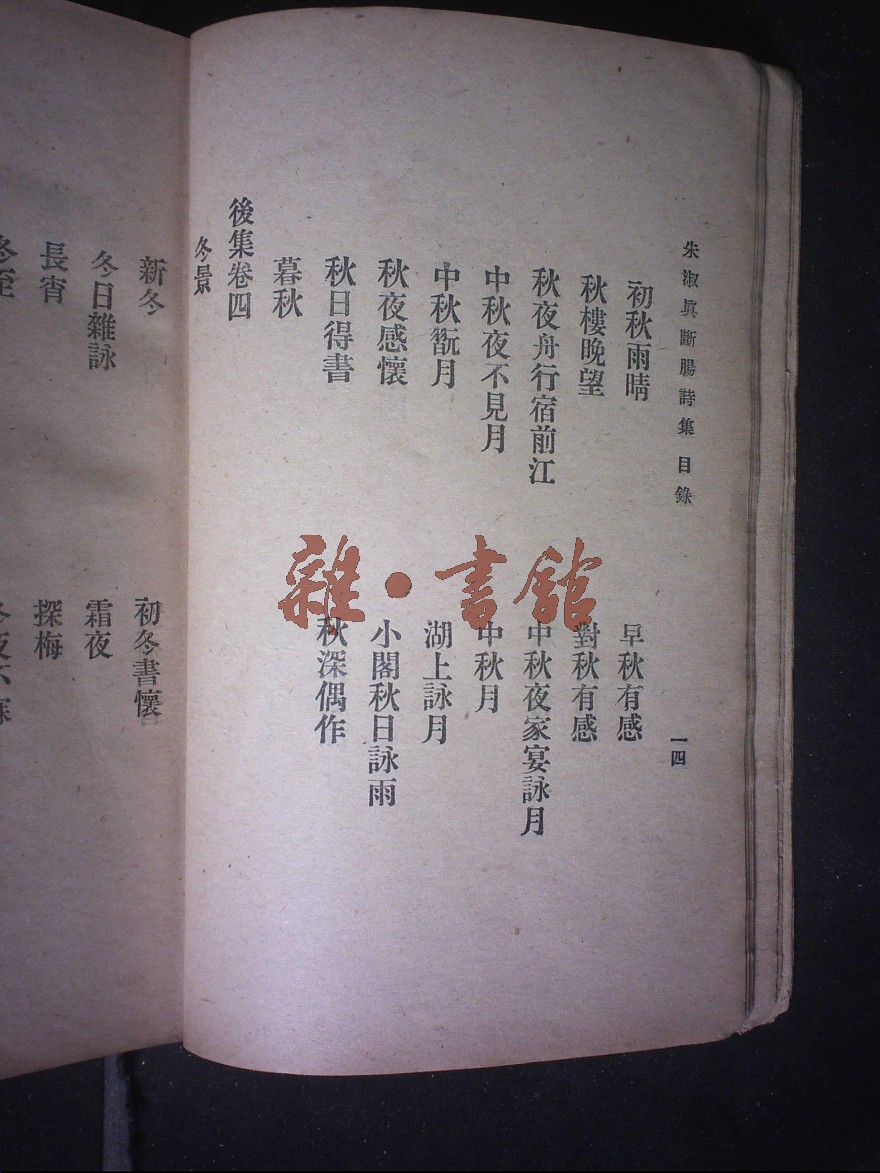 朱淑眞斷腸詩集 目錄
一四
初秋雨晴
早秋有感
秋樓晚望
對秋有感
秋夜舟行宿前江
中秋夜家宴詠月
中秋夜不見月
中秋月
中秋翫月
湖上詠月
秋夜感懷
小閣秋日詠雨
秋日得書
秋深偶作
暮秋
後集卷四
冬景
新冬
初冬書懷
冬日雜詠
霜夜
長宵
探梅
冬至
雜·書館